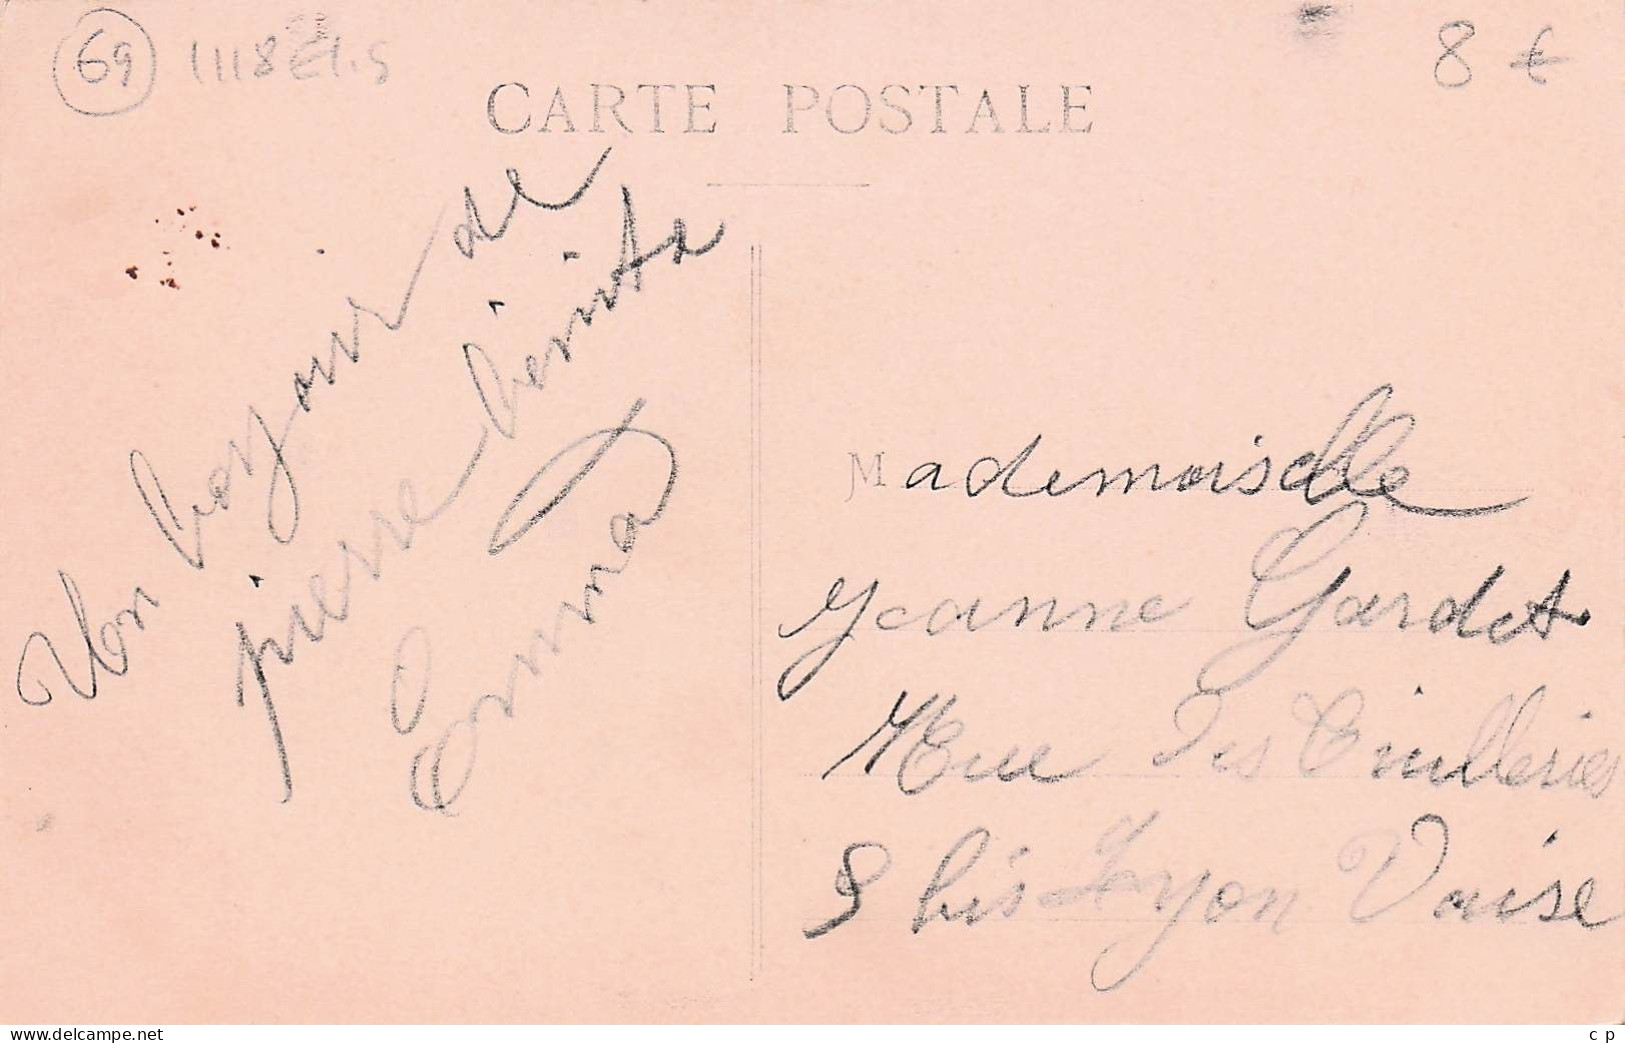 69
8 €
CARTE POSTALE
Un bonjour de
pierre benita
Emma
Mademoiselle
Jeanne Gardet
Rue des Tuilleries
9 bis Lyon Vaise
www.delcampe.net
cp